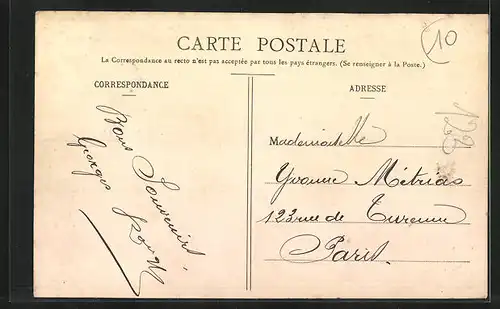 CARTE POSTALE
La Correspondance au recto n'est pas acceptée par tous les pays étrangers. (Se renseigner à la Poste.)
CORRESPONDANCE
Bons Souvenirs,
Georges
ADRESSE
Mademoiselle
Yvonne Métrias
123 rue de Turenne
Paris.
10